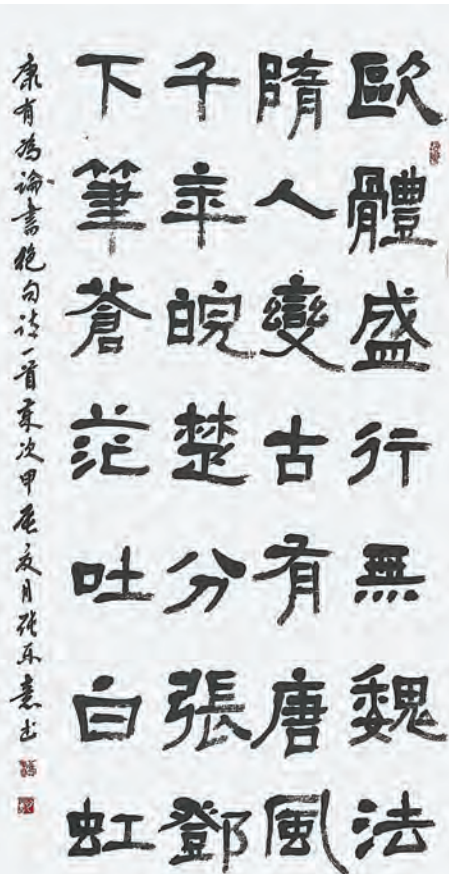 歐體盛行無魏法
隋人變古有唐風
千年皖楚分張鄧
下筆蒼茫吐白虹
康有為論書絕句詩一首歲次甲辰夏月張